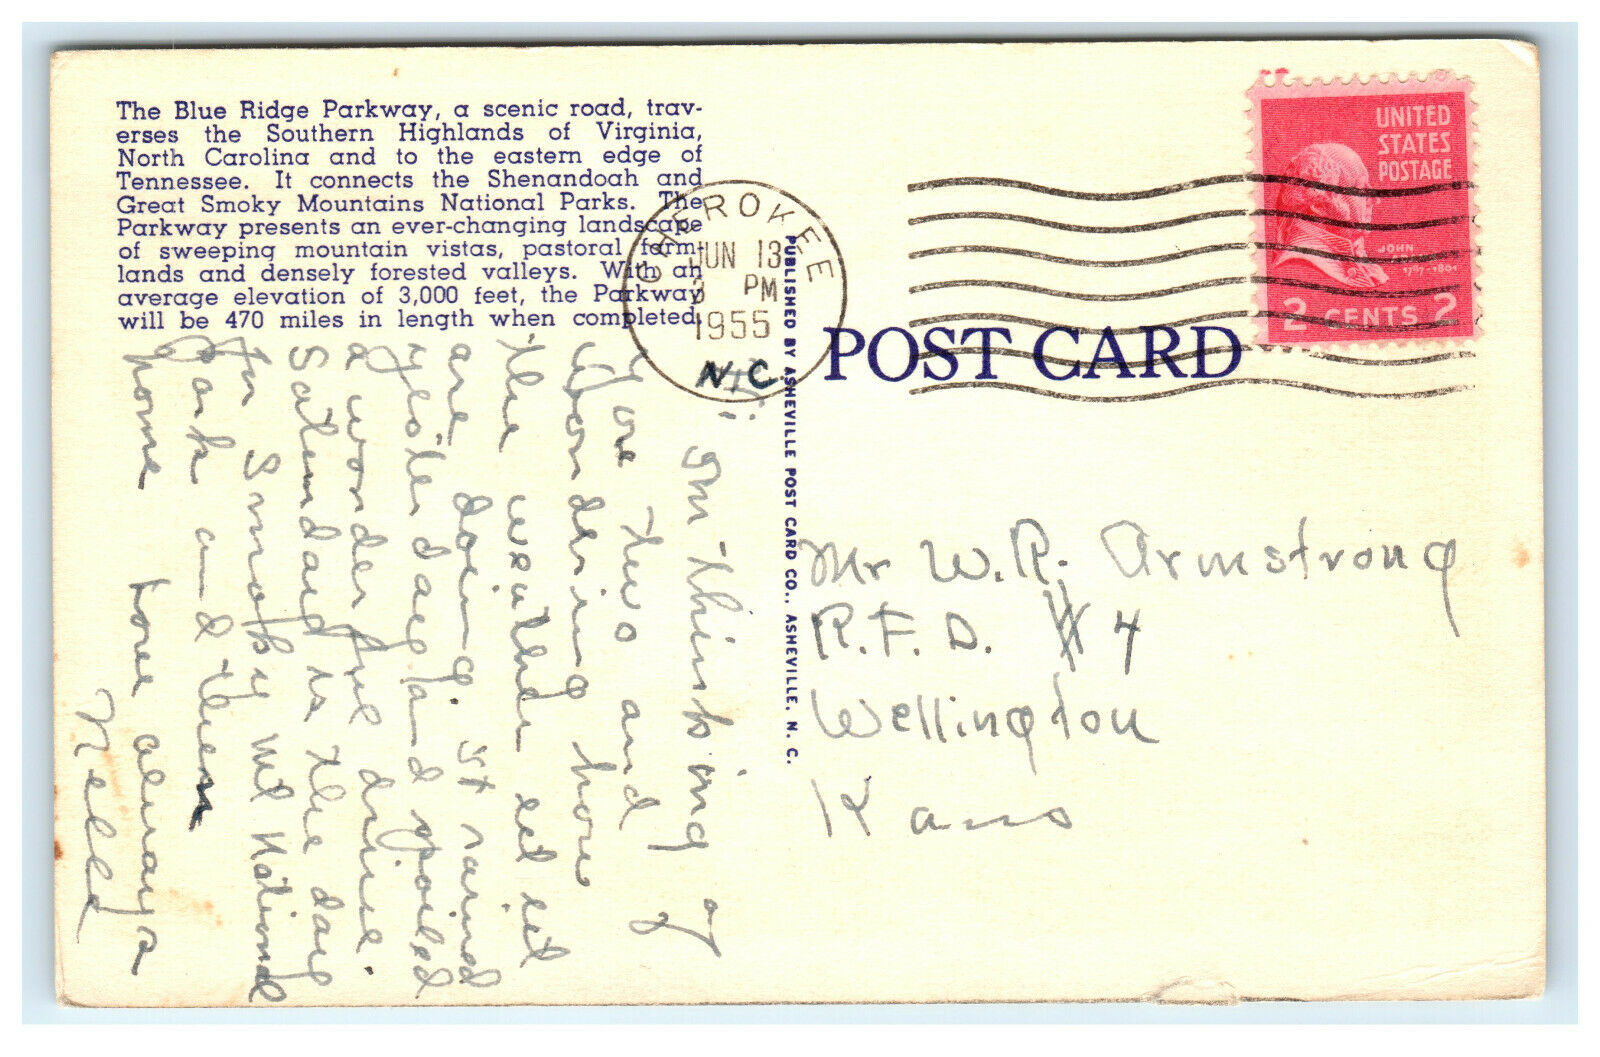 The Blue Ridge Parkway, a scenic road, trav-
erses the Southern Highlands of Virginia,
North Carolina and to the eastern edge of
Tennessee. It connects the Shenandoah and
Great Smoky Mountains National Parks. The
Parkway presents an ever-changing landscape
of sweeping mountain vistas, pastoral farm-
lands and densely forested valleys. With an
average elevation of 3,000 feet, the Parkway
will be 470 miles in length when completed.
Hi:
Im thinking of
you two and
wondering how
the weather
are doing. It rained
yesterday and spoiled
a wonderful drive.
Saturdaid is the day
for Smoky Mt National
Park and then
home love always
Nelle
CHEROKEE
JUN 13
3 PM
1955
N.C.
PUBLISHED BY ASHEVILLE POST CARD CO., ASHEVILLE, N. C.
POST CARD
UNITED
STATES
POSTAGE
JOHN
ADAMS
1797-1801
2 CENTS 2
Mr W.R. Armstrong
R.F.D. #4
Wellington
Kans